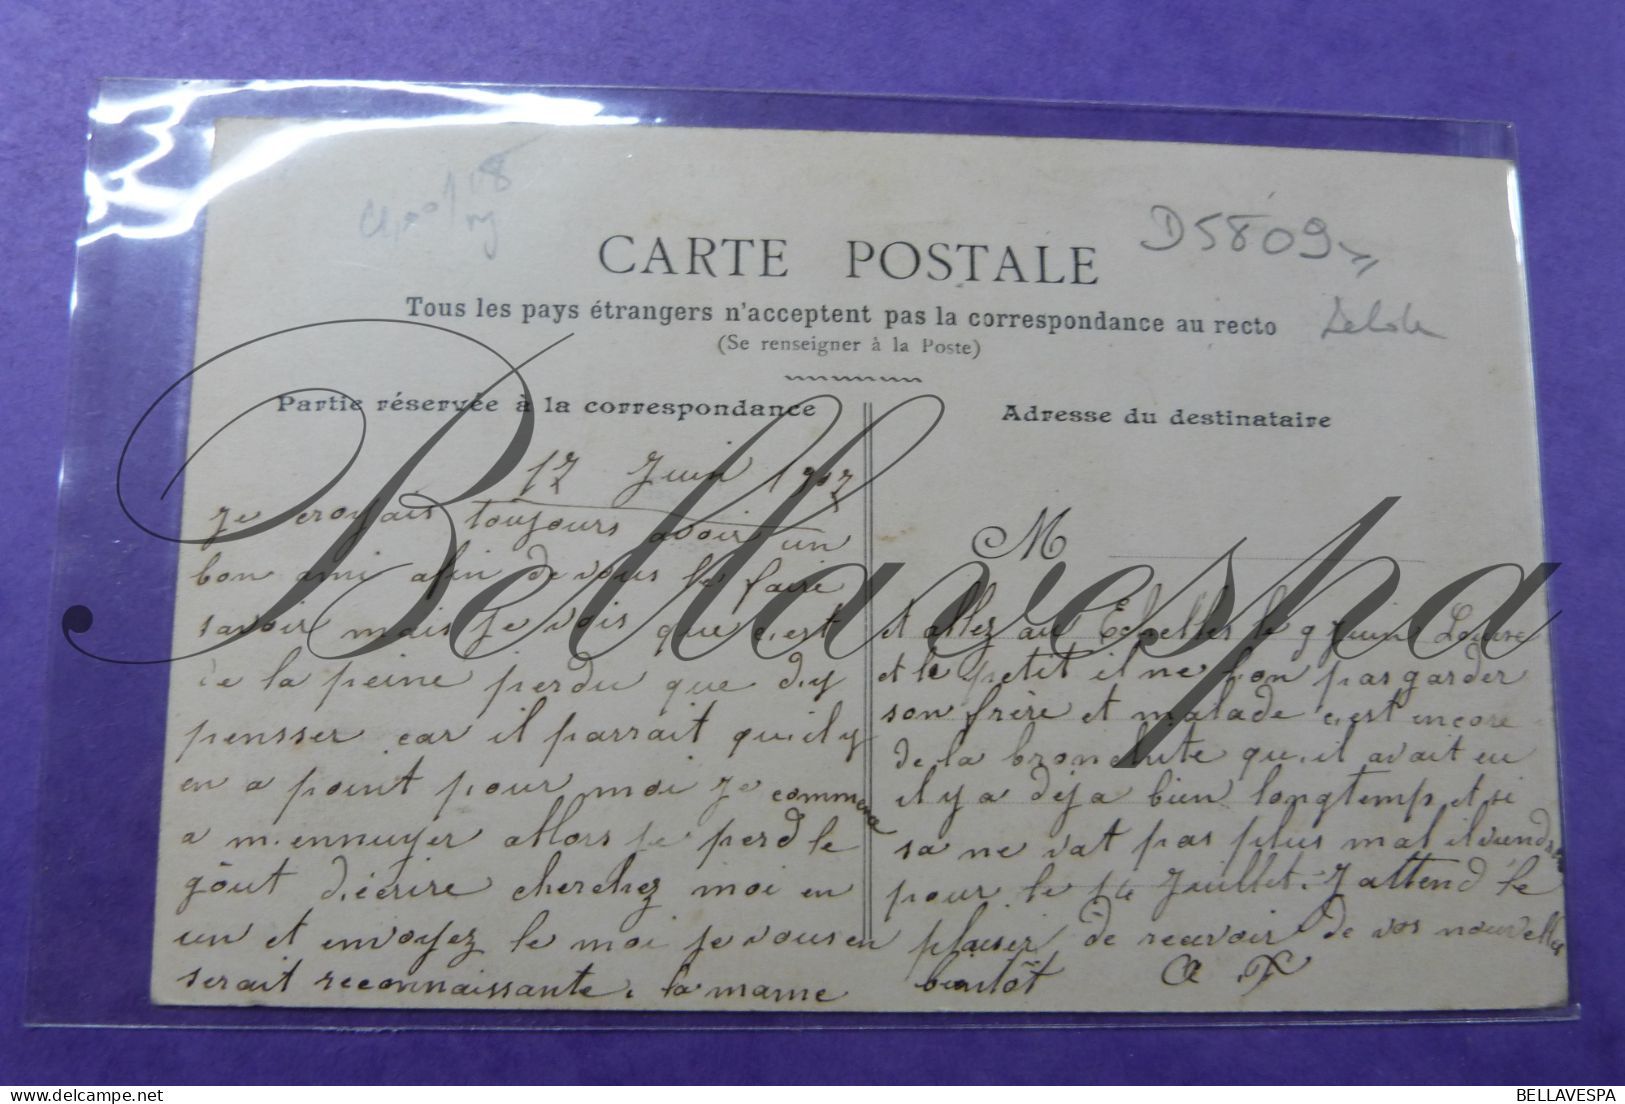 D5809
CARTE POSTALE
Tous les pays étrangers n'acceptent pas la correspondance au recto
(Se renseigner à la Poste)
Partie réservée à la correspondance
17 Juin 1907
Je croyais toujours avoir un
bon ami afin de vous le faire
savoir mais je vois que c.est
de la peine perdu que d.y
pensser car il parrait qu.il y
en a point pour moi Je commence
a m.ennuyer allors je perd le
gôut d.écrire cherchez moi en
un et envoyez le moi je vous en
serait reconnaissante. la mame
Adresse du destinataire
M
et allez au Echelles le Louise
et le petit il ne pas garder
son frère et malade c.est encore
de la bronchite qu.il avait eu
il y a déja bien longtemp et si
sa ne vat pas plus mal il viendra
pour le 14 Juillet. J attend le
plaisir de recevoir de vos nouvelles
bientôt
Bellavespa
BELLAVESPA